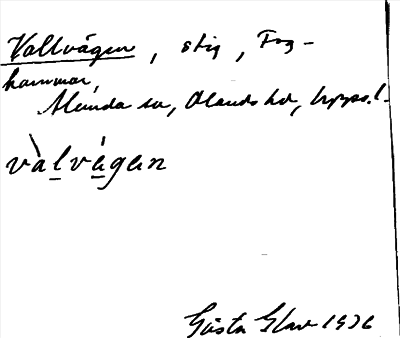 Vallvägen, stig, Fog-
hammar,
Alunda sn, Olands hd, Upps.l.
vàlvágan
Gösta Glav 1936